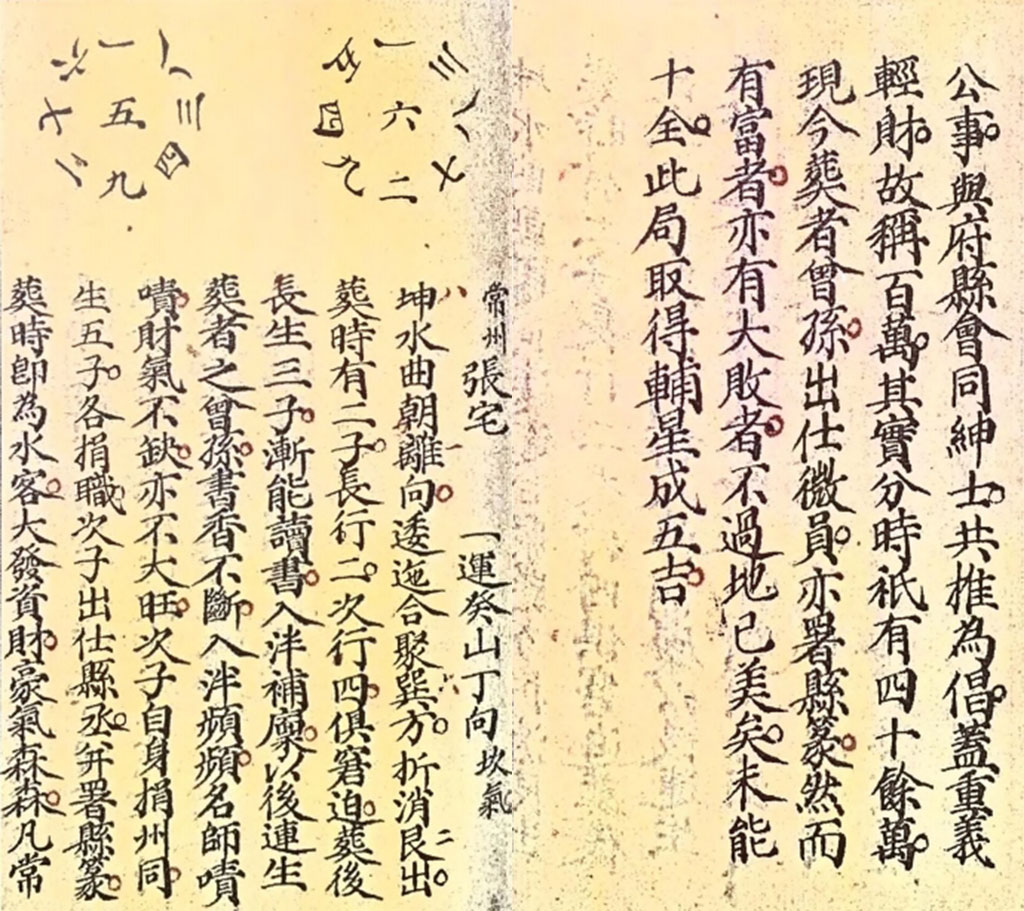 公事與府縣會同紳士共推為倡蓋重義
輕財故稱百萬其實分時祇有四十餘萬
現今葬者曾孫出仕微員亦署縣篆然而
有富者亦有大敗者不過地已美矣未能
十全此局取得輔星成五吉
三 一 五
八 六 四
七 二 九
八 一 六
三 五 七
四 九 二
常州張宅 一運癸山丁向坎氣
坤水曲朝離向逶迤合聚巽方折消艮出
葬時有二子長行二次行四俱窘迫葬後
長生三子漸能讀書入泮補廩以後連生
葬者之曾孫書香不斷入泮頻頻名師嘖
嘖財氣不缺亦不大旺次子自身捐州同
生五子各捐職次子出仕縣丞并署縣篆
葬時即為水客大發資財豪氣森森凡常